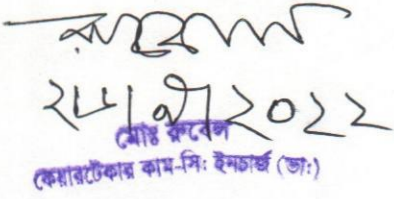 রুবেল
২০২২
মোঃ রুবেল
কেয়ারটেকার কাম-সি: ইনচার্জ (ভা:)